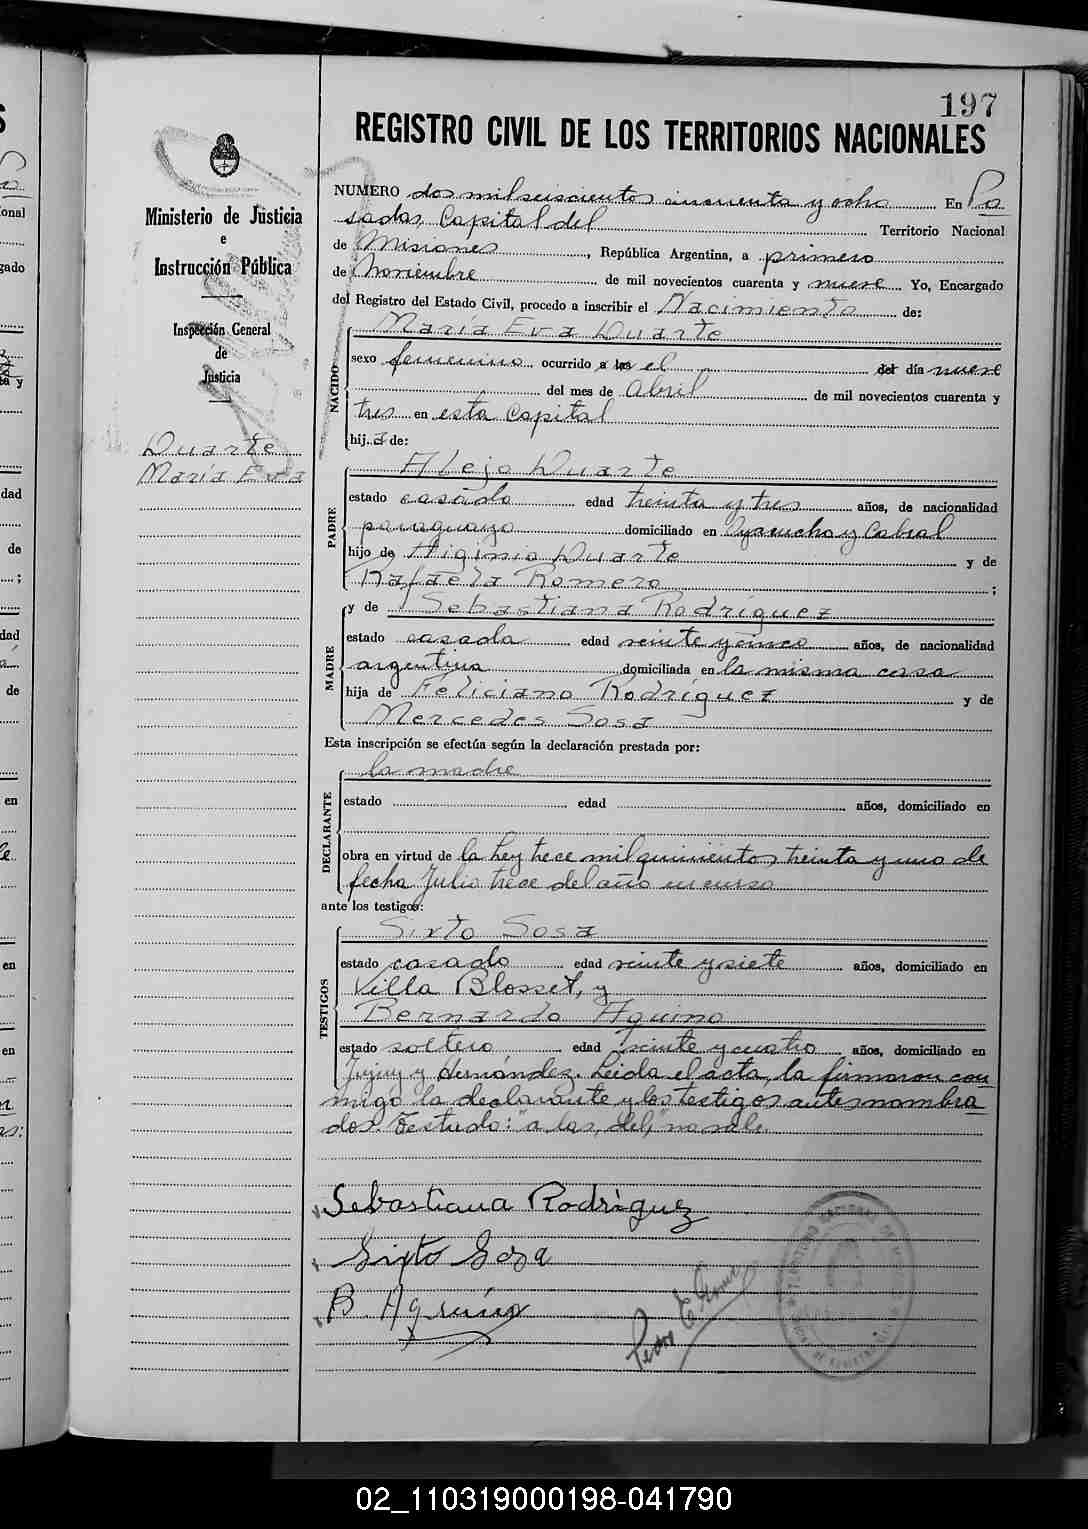 197
REGISTRO CIVIL DE LOS TERRITORIOS NACIONALES
Ministerio de Justicia
e
Instrucción Pública
Inspección General
de
Justicia
Duarte
María Eva
NUMERO dos mil seiscientos cincuenta y ocho En Po
sadas, Capital del Territorio Nacional
de Misiones, República Argentina, a primero
de Noviembre de mil novecientos cuarenta y nueve Yo, Encargado
del Registro del Estado Civil, procedo a inscribir el Nacimiento de:
NACIDO
María Eva Duarte
sexo femenino ocurrido a las el del día nueve
del mes de Abril de mil novecientos cuarenta y
tres en esta Capital
hija de:
PADRE
Alejo Duarte
estado casado edad treinta y tres años, de nacionalidad
paraguayo domiciliado en Ayacucho y Cabral
hijo de Higinio Duarte y de
Rafaela Romero ;
MADRE
y de Sebastiana Rodríguez
estado casada edad veinte y cinco años, de nacionalidad
argentina domiciliada en la misma casa
hija de Feliciano Rodríguez y de
Mercedes Sosa
Esta inscripción se efectúa según la declaración prestada por:
DECLARANTE
la madre
estado edad años, domiciliado en
obra en virtud de la Ley trece mil quinientos treinta y uno de
fecha Julio trece del año en curso
ante los testigos:
TESTIGOS
Sixto Sosa
estado casado edad veinte y siete años, domiciliado en
Villa Blosset, y
Bernardo Aquino
estado soltero edad veinte y cuatro años, domiciliado en
Jujuy y Hernández. Leida el acta, la firmaron con
migo la declarante y los testigos antes nombra
dos. Testado: "a las, del," no vale.
Sebastiana Rodríguez
Sixto Sosa
B. Aquino
02_110319000198-041790